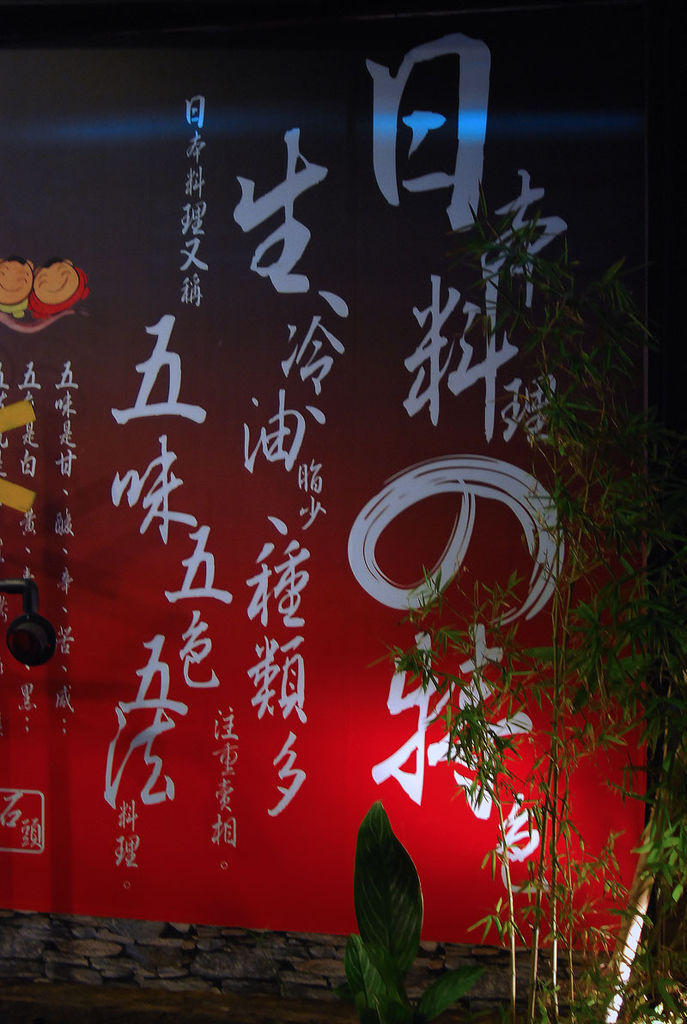 日本料理の特色
生、冷、油脂少、種類多
注重賣相。
日本料理又稱
五味五色五法
料理。
五味是甘、酸、辛、苦、咸；
石頭